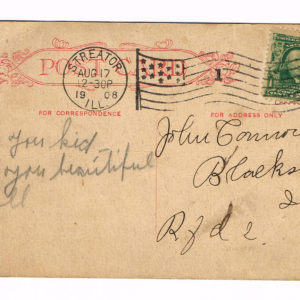 PO
STREATOR
AUG 17
12-30P
1908
ILL.
1
FOR CORRESPONDENCE
FOR ADDRESS ONLY
you kid
you beautiful
John Connor
Blacks
Rfd 2.